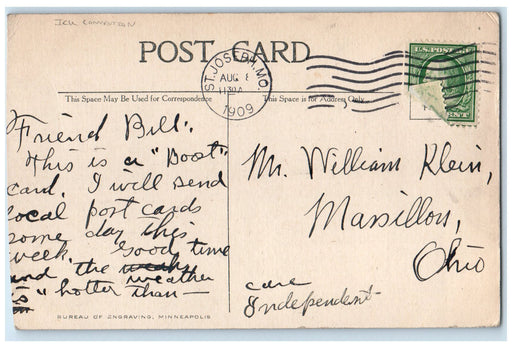 POST CARD
ST. JOSEPH, MO.
AUG 8
1130A
1909
U.S. POSTAGE
CENT
This Space May Be Used for Correspondence
This Space is for Address Only
Friend Bill:
This is a "Boost"
card. I will send
local post cards
some day this
week. Good time
and the weath weather
is "hotter than—
Mr. William Klein,
Massillon,
Ohio
care
Independent-
BUREAU OF ENGRAVING, MINNEAPOLIS